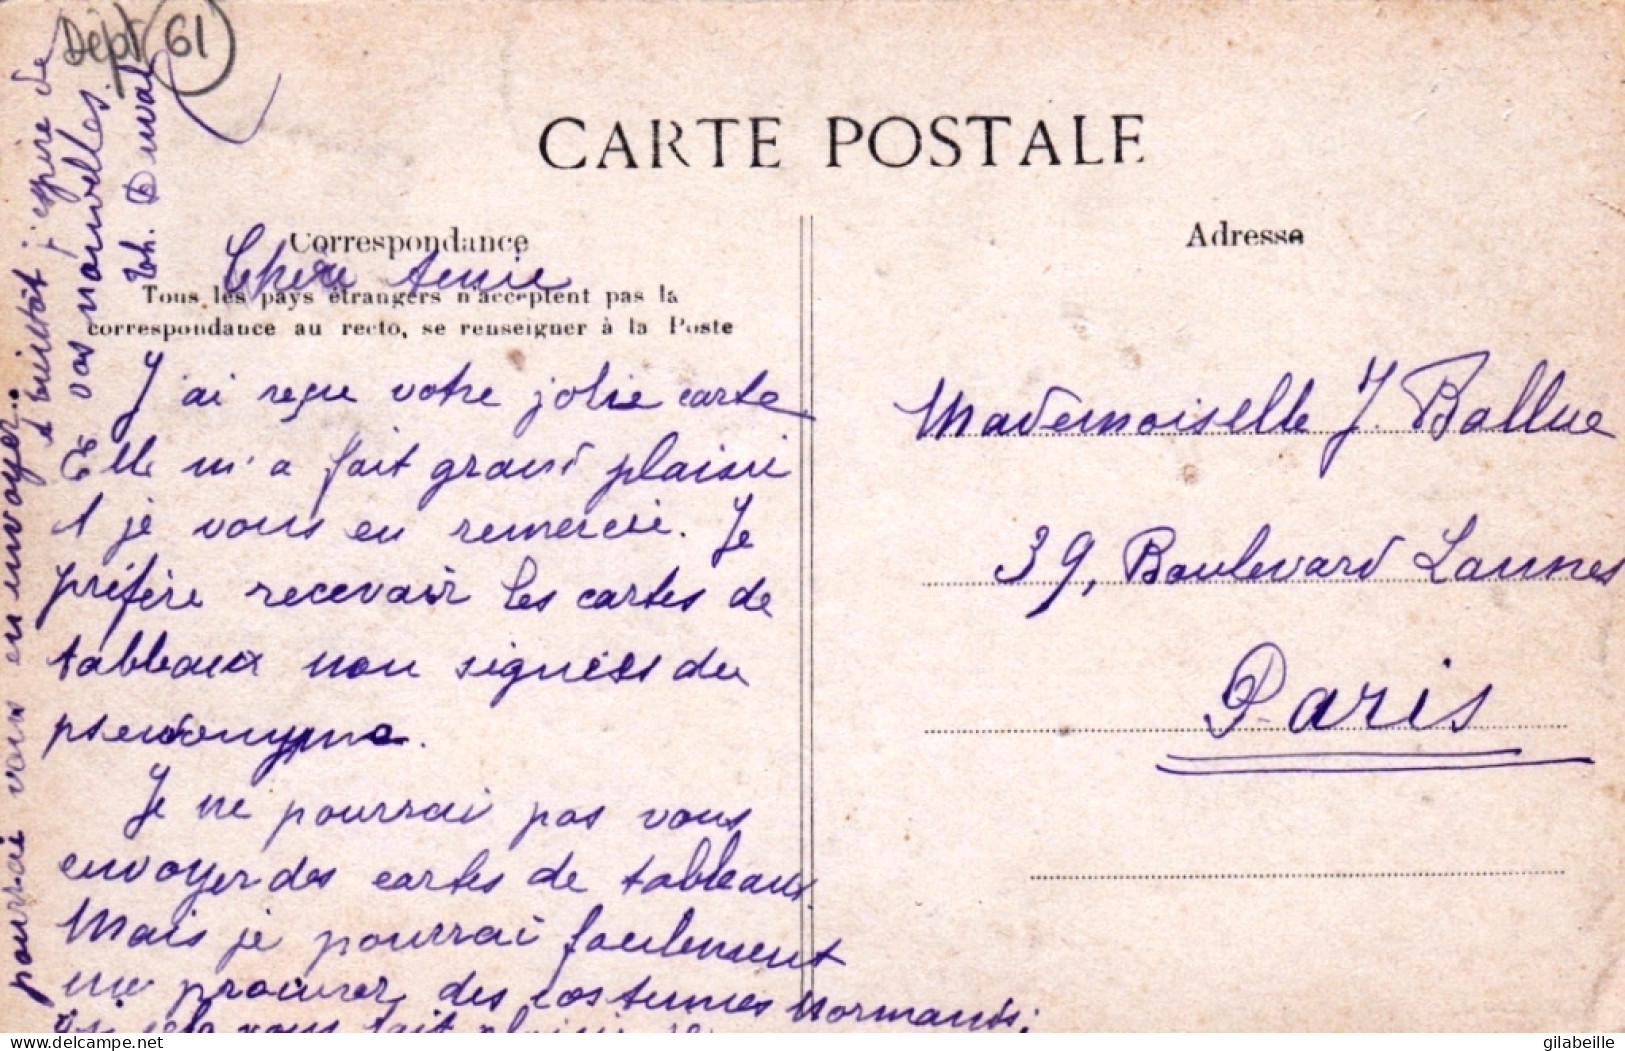 Dépt 61
CARTE POSTALE
Correspondance
Adresse
Chère Amie
Tous les pays étrangers n'acceptent pas la
correspondance au recto, se renseigner à la Poste
J'ai reçu votre jolie carte
Elle m'a fait grand plaisir
je vous en remercie. Je
préfère recevoir les cartes de
tableaux non signées du
pseudonyme.
Je ne pourrai pas vous
envoyer des cartes de tableaux.
Mais je pourrai facilement
me procurer des costumes Normands;
si cela vous fait plaisir je
pourrai vous en envoyer.
A bientôt j'espère de
vos nouvelles.
Th. Duval
Mademoiselle J. Ballue
39, Boulevard Lannes
Paris
delcampe.net
gilabeille